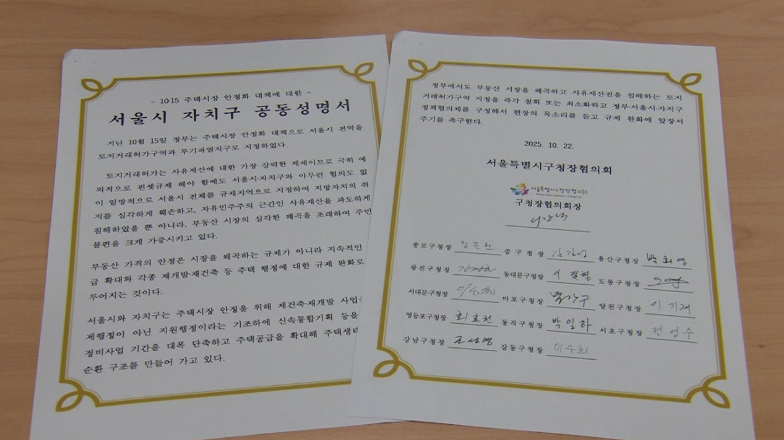 - 10·15 주택시장 안정화 대책에 대한 -
서울시 자치구 공동성명서
지난 10월 15일 정부는 주택시장 안정화 대책으로 서울시 전역을
토지거래허가구역과 투기과열지구로 지정하였다.
토지거래허가는 사유재산에 대한 가장 강력한 제재이므로 극히 예
외적으로 핀셋규제 해야 함에도 서울시·자치구와 아무런 협의도 없
이 일방적으로 서울시 전체를 규제지역으로 지정하여 지방자치의 취
지를 심각하게 훼손하고, 자유민주주의 근간인 사유재산을 과도하게
침해하였을 뿐 아니라, 부동산 시장의 심각한 왜곡을 초래하여 주민
불편을 크게 가중시키고 있다.
부동산 가격의 안정은 시장을 왜곡하는 규제가 아니라 지속적인
급 확대와 각종 재개발·재건축 등 주택 행정에 대한 규제 완화로
루어지는 것이다.
서울시와 자치구는 주택시장 안정을 위해 재건축·재개발 사업
제행정이 아닌 지원행정이라는 기조하에 신속통합기획 등을
정비사업 기간을 대폭 단축하고 주택공급을 확대해 주택생태
순환 구조를 만들어 가고 있다.
정부에서도 부동산 시장을 왜곡하고 사유재산권을 침해하는 토지
거래허가구역 지정을 즉각 철회 또는 최소화하고 정부·서울시·자치구
정책협의체를 구성해서 현장의 목소리를 듣고 규제 완화에 앞장서
주기를 촉구한다.
2025. 10. 22.
서울특별시구청장협의회
서울특별시구청장협의회
구청장협의회장
종로구청장 중구청장 용산구청장 박희영
광진구청장 동대문구청장 이필형 도봉구청장
서대문구청장 마포구청장 박강수 양천구청장 이기재
영등포구청장 최호권 동작구청장 박일하 서초구청장 전성수
강남구청장 조성명 강동구청장 이수희